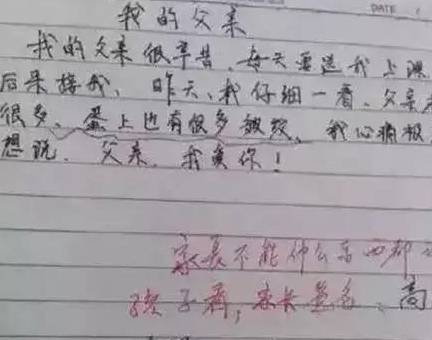 DATE
我的父亲
我的父亲很辛苦、每天要送我上课
后来接我、昨天、我仔细一看、父亲
很多、蛋上也有很多皱纹、我心痛极
想说、父亲、我爱你！
家长不能什么东西都
孩子看，家长签名、高